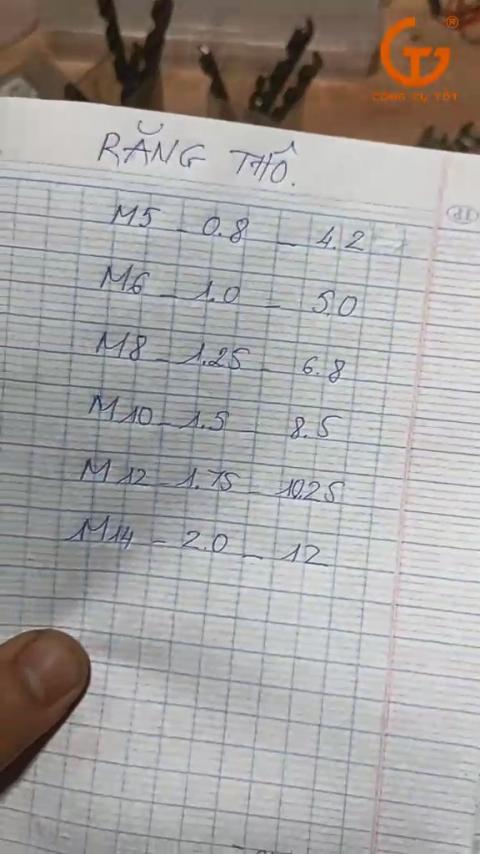 CÔNG CỤ TỐT
RĂNG THÔ.
M5 - 0.8 - 4.2
M6 - 1.0 - 5.0
M8 - 1.25 - 6.8
M10 - 1.5 - 8.5
M12 - 1.75 - 10.25
M14 - 2.0 - 12